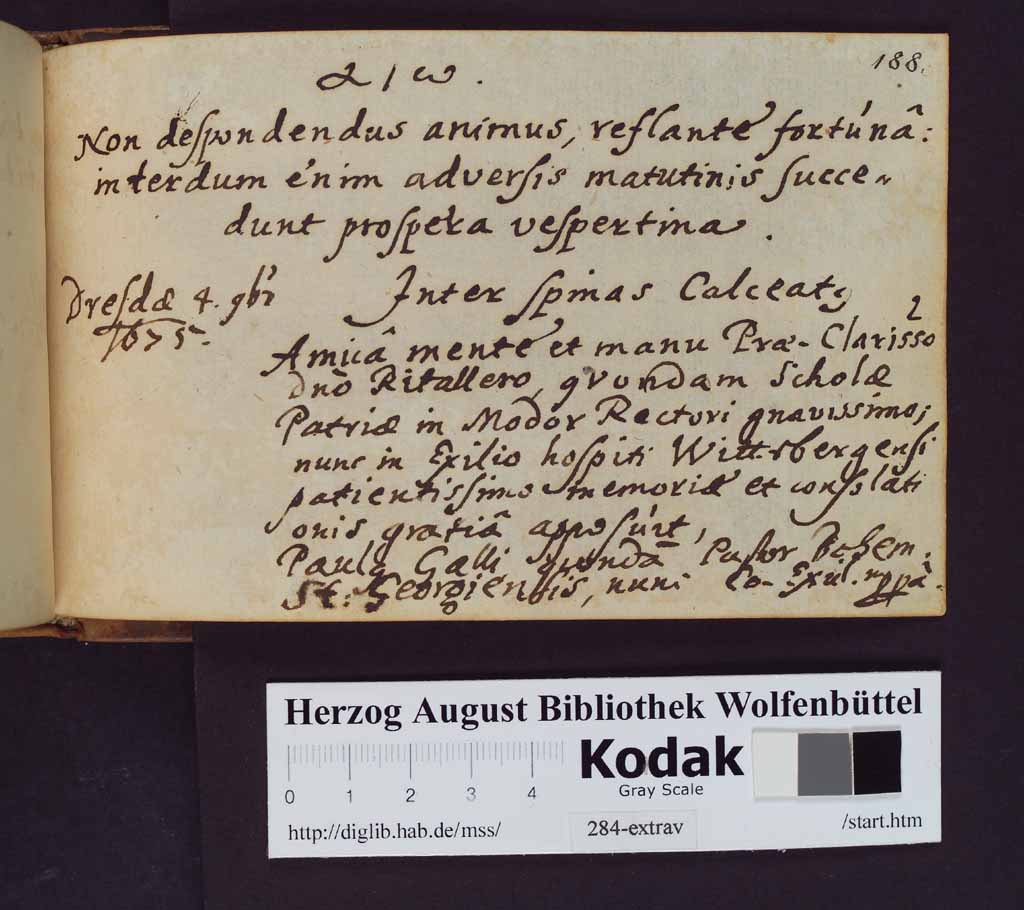 188.
α / ω.
Non deſpondendus animus, reflante fortúnâ:
interdum énim adverſis matutinis ſucce-
dunt proſpera veſpertina.
Dreſdæ 4. 9br
1675.
Inter ſpinas Calceatꝰ
Amicâ mente et manu Præ-Clarisso
dno Ritallero, qvondam Scholæ
Patriæ in Modor Rectori gnavissimo;
nunc in Exilio hoſpiti Wittebergenſi
patientiſſimo memoriæ et conſolati
onis gratiâ appoſúit,
Paulꝰ Galli quondā Paſtor Bohem.
St. Georgienſis, nunc Co-Exul. mppâ.
Herzog August Bibliothek Wolfenbüttel
Kodak
Gray Scale
0 1 2 3 4
http://diglib.hab.de/mss/
284-extrav
/start.htm